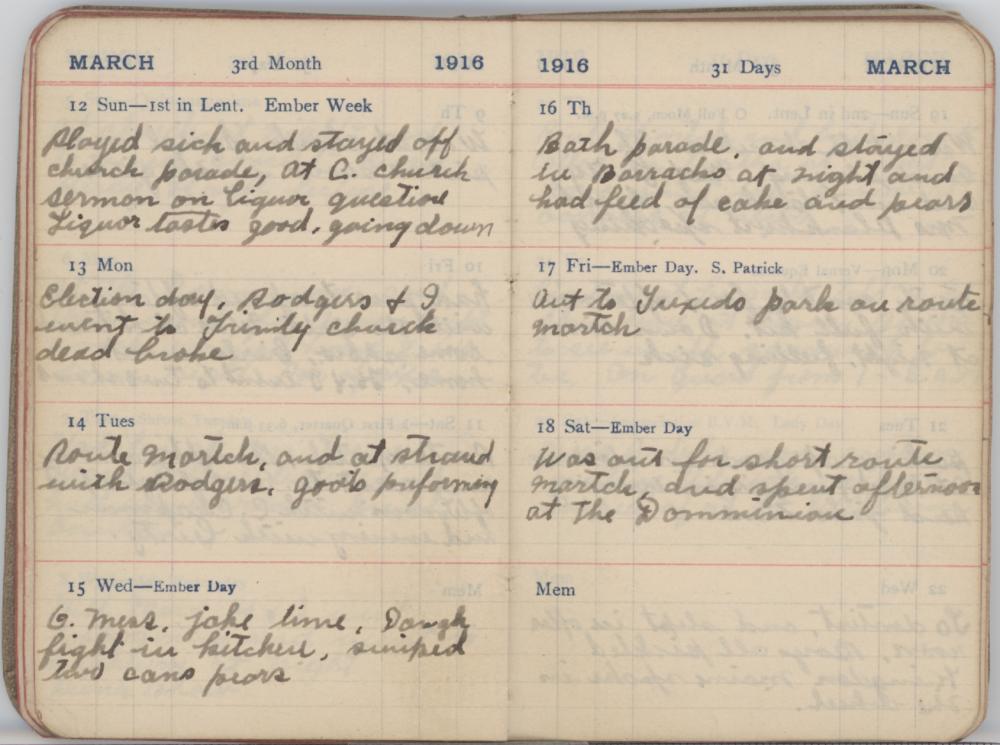 MARCH 3rd Month 1916
12 Sun—1st in Lent. Ember Week
Played sick and stayed off
church parade, at C. church
sermon on liquor question
Liquor tastes good, going down
13 Mon
Election day, Rodgers & I
went to Trinity church
dead broke
14 Tues
Route martch, and at strand
with Rodgers, goods preforming
15 Wed—Ember Day
O. Mess, jake time, Dough
fight in kitchen, swiped
two cans pears
1916 31 Days MARCH
16 Th
Bath parade, and stayed
in Barracks at night and
had feed of cake and pears
17 Fri—Ember Day. S. Patrick
Out to Tuxedo park on route
martch
18 Sat—Ember Day
Was out for short route
martch, and spent afternoon
at The Domminion
Mem